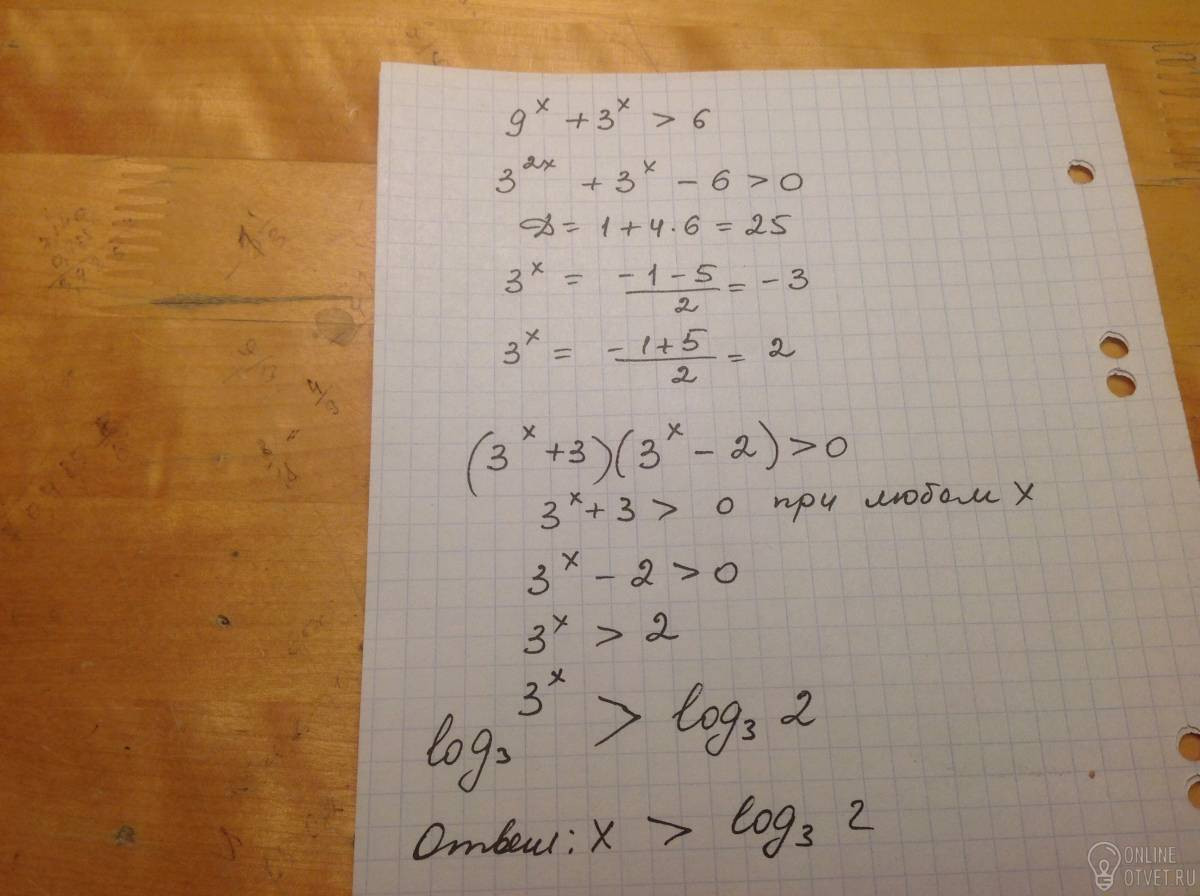 9^x + 3^x > 6
3^{2x} + 3^x - 6 > 0
D = 1 + 4 · 6 = 25
3^x = \frac{-1-5}{2} = -3
3^x = \frac{-1+5}{2} = 2
(3^x + 3)(3^x - 2) > 0
3^x + 3 > 0 при любом x
3^x - 2 > 0
3^x > 2
log_3 3^x > log_3 2
Ответ: x > log_3 2
ONLINE
OTVET.RU